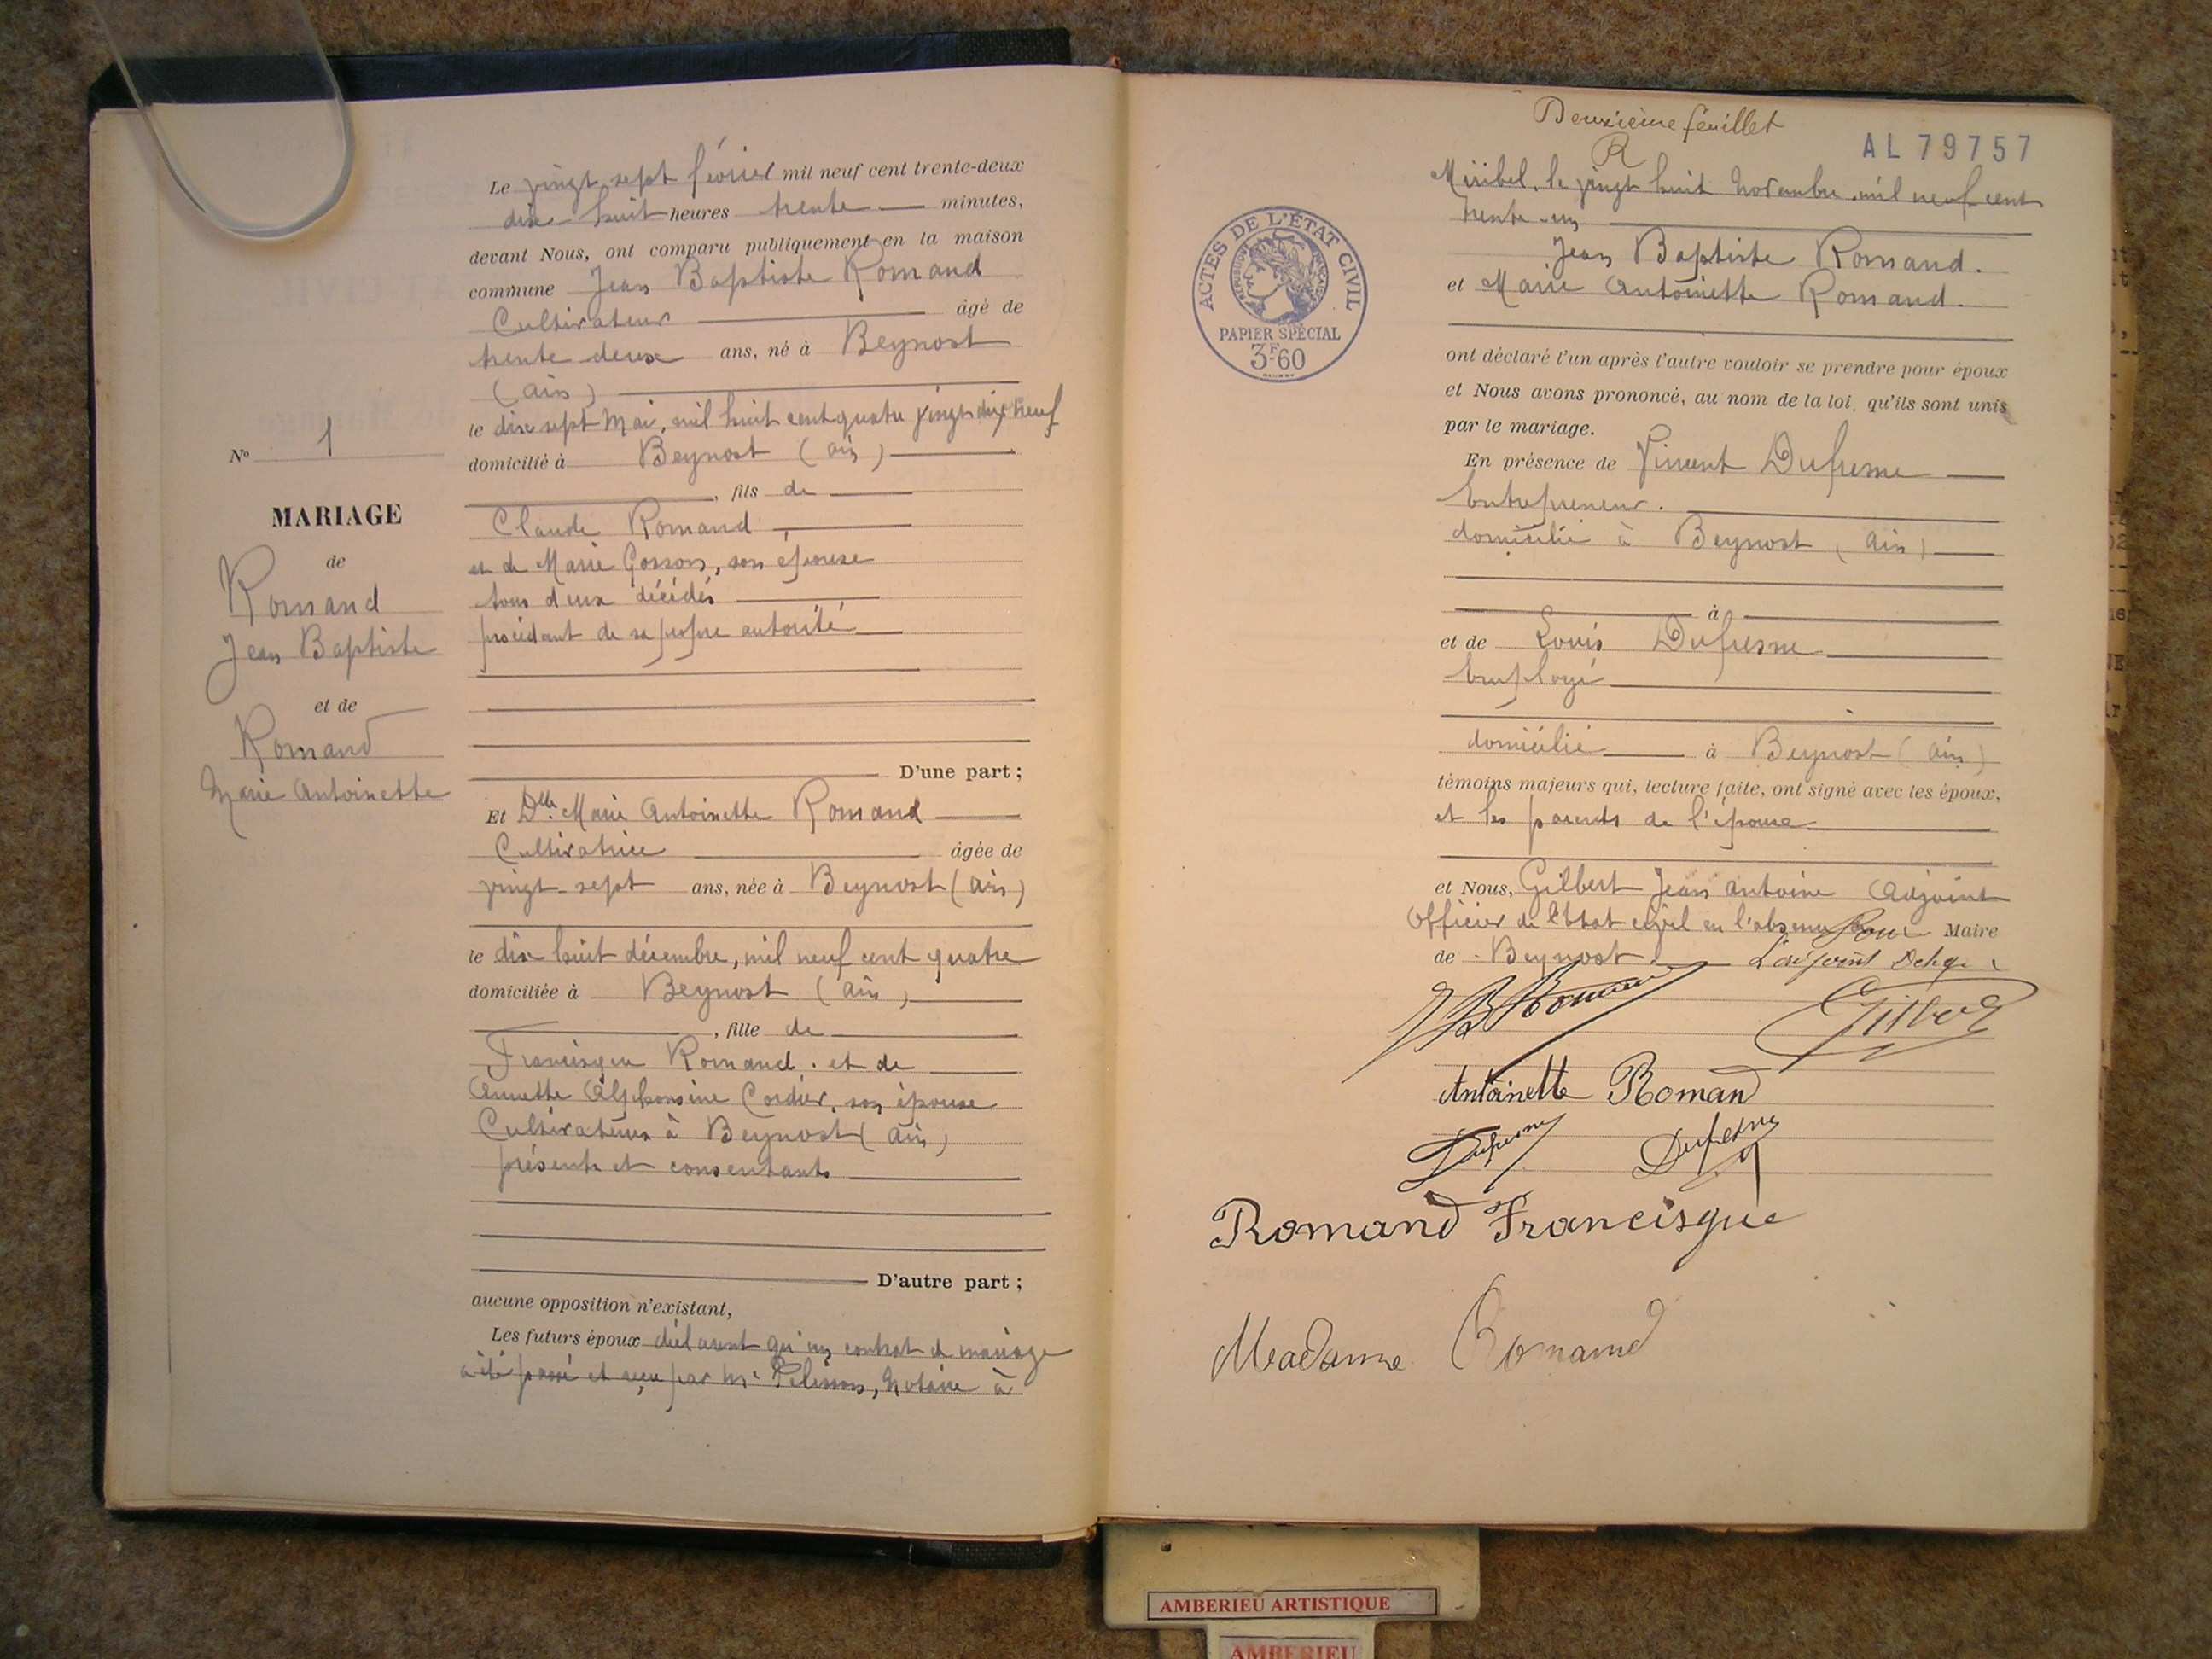 Le vingt sept février mil neuf cent trente-deux
dix-huit heures trente minutes,
devant Nous, ont comparu publiquement en la maison
commune Jean Baptiste Romand
Cultivateur âgé de
trente deux ans, né à Beynost
(Ain)
le dix sept Mai, mil huit cent quatre vingt dix neuf
domicilié à Beynost (Ain)
, fils de
Claude Romand
et de Marie Gosson, son épouse
tous deux décédés
procédant de sa propre autorité
D'une part ;
N° 1
MARIAGE
de
Romand
Jean Baptiste
et de
Romand
Marie Antoinette
Et Dlle Marie Antoinette Romand
Cultivatrice âgée de
vingt-sept ans, née à Beynost (Ain)
le dix huit décembre, mil neuf cent quatre
domiciliée à Beynost (Ain)
, fille de
Francisque Romand. et de
Annette Alphonsine Cordier, son épouse
Cultivateurs à Beynost (Ain)
présents et consentants
D'autre part ;
aucune opposition n'existant,
Les futurs époux déclarent qu'un contrat de mariage
a été passé et reçu par Me Pelisson, Notaire à
Deuxième feuillet
R
AL 79757
Miribel, le vingt huit Novembre, mil neuf cent
trente-un
Jean Baptiste Romand.
et Marie Antoinette Romand.
ACTES DE L'ÉTAT CIVIL
PAPIER SPÉCIAL
3F60
ont déclaré l'un après l'autre vouloir se prendre pour époux
et Nous avons prononcé, au nom de la loi, qu'ils sont unis
par le mariage.
En présence de Vincent Dufresne
Entrepreneur.
domicilié à Beynost (Ain)
à
et de Louis Dufresne
Employé
domicilié à Beynost (Ain)
témoins majeurs qui, lecture faite, ont signé avec les époux,
et les parents de l'épouse
et Nous, Gilbert Jean Antoine Adjoint
Officier de l'Etat civil en l'absence Pour Maire
de Beynost. L'adjoint Delegué
JB Romand
Gilbert
Antoinette Romand
Dufresne Dufresne
Romand Francisque
Madame Romand
AMBERIEU ARTISTIQUE
AMBERIEU